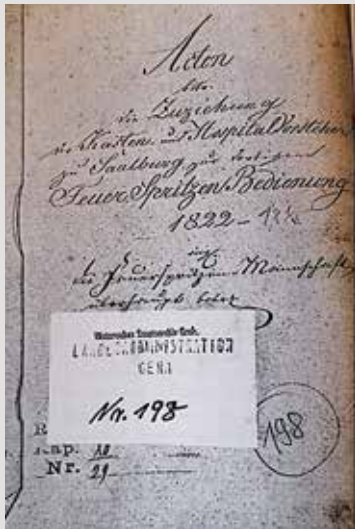 Acten
betr.
die Zuziehung
der Kasten- und Hospital Vorsteher
zu Saalburg zur dortigen
Feuer Spritzen Bedienung
1822 –
die Feuerspritzen-Mannschaft
überhaupt betr.
LANDESADMINISTRATION
GERA
Nr. 198
198
Kap.
Nr. 29